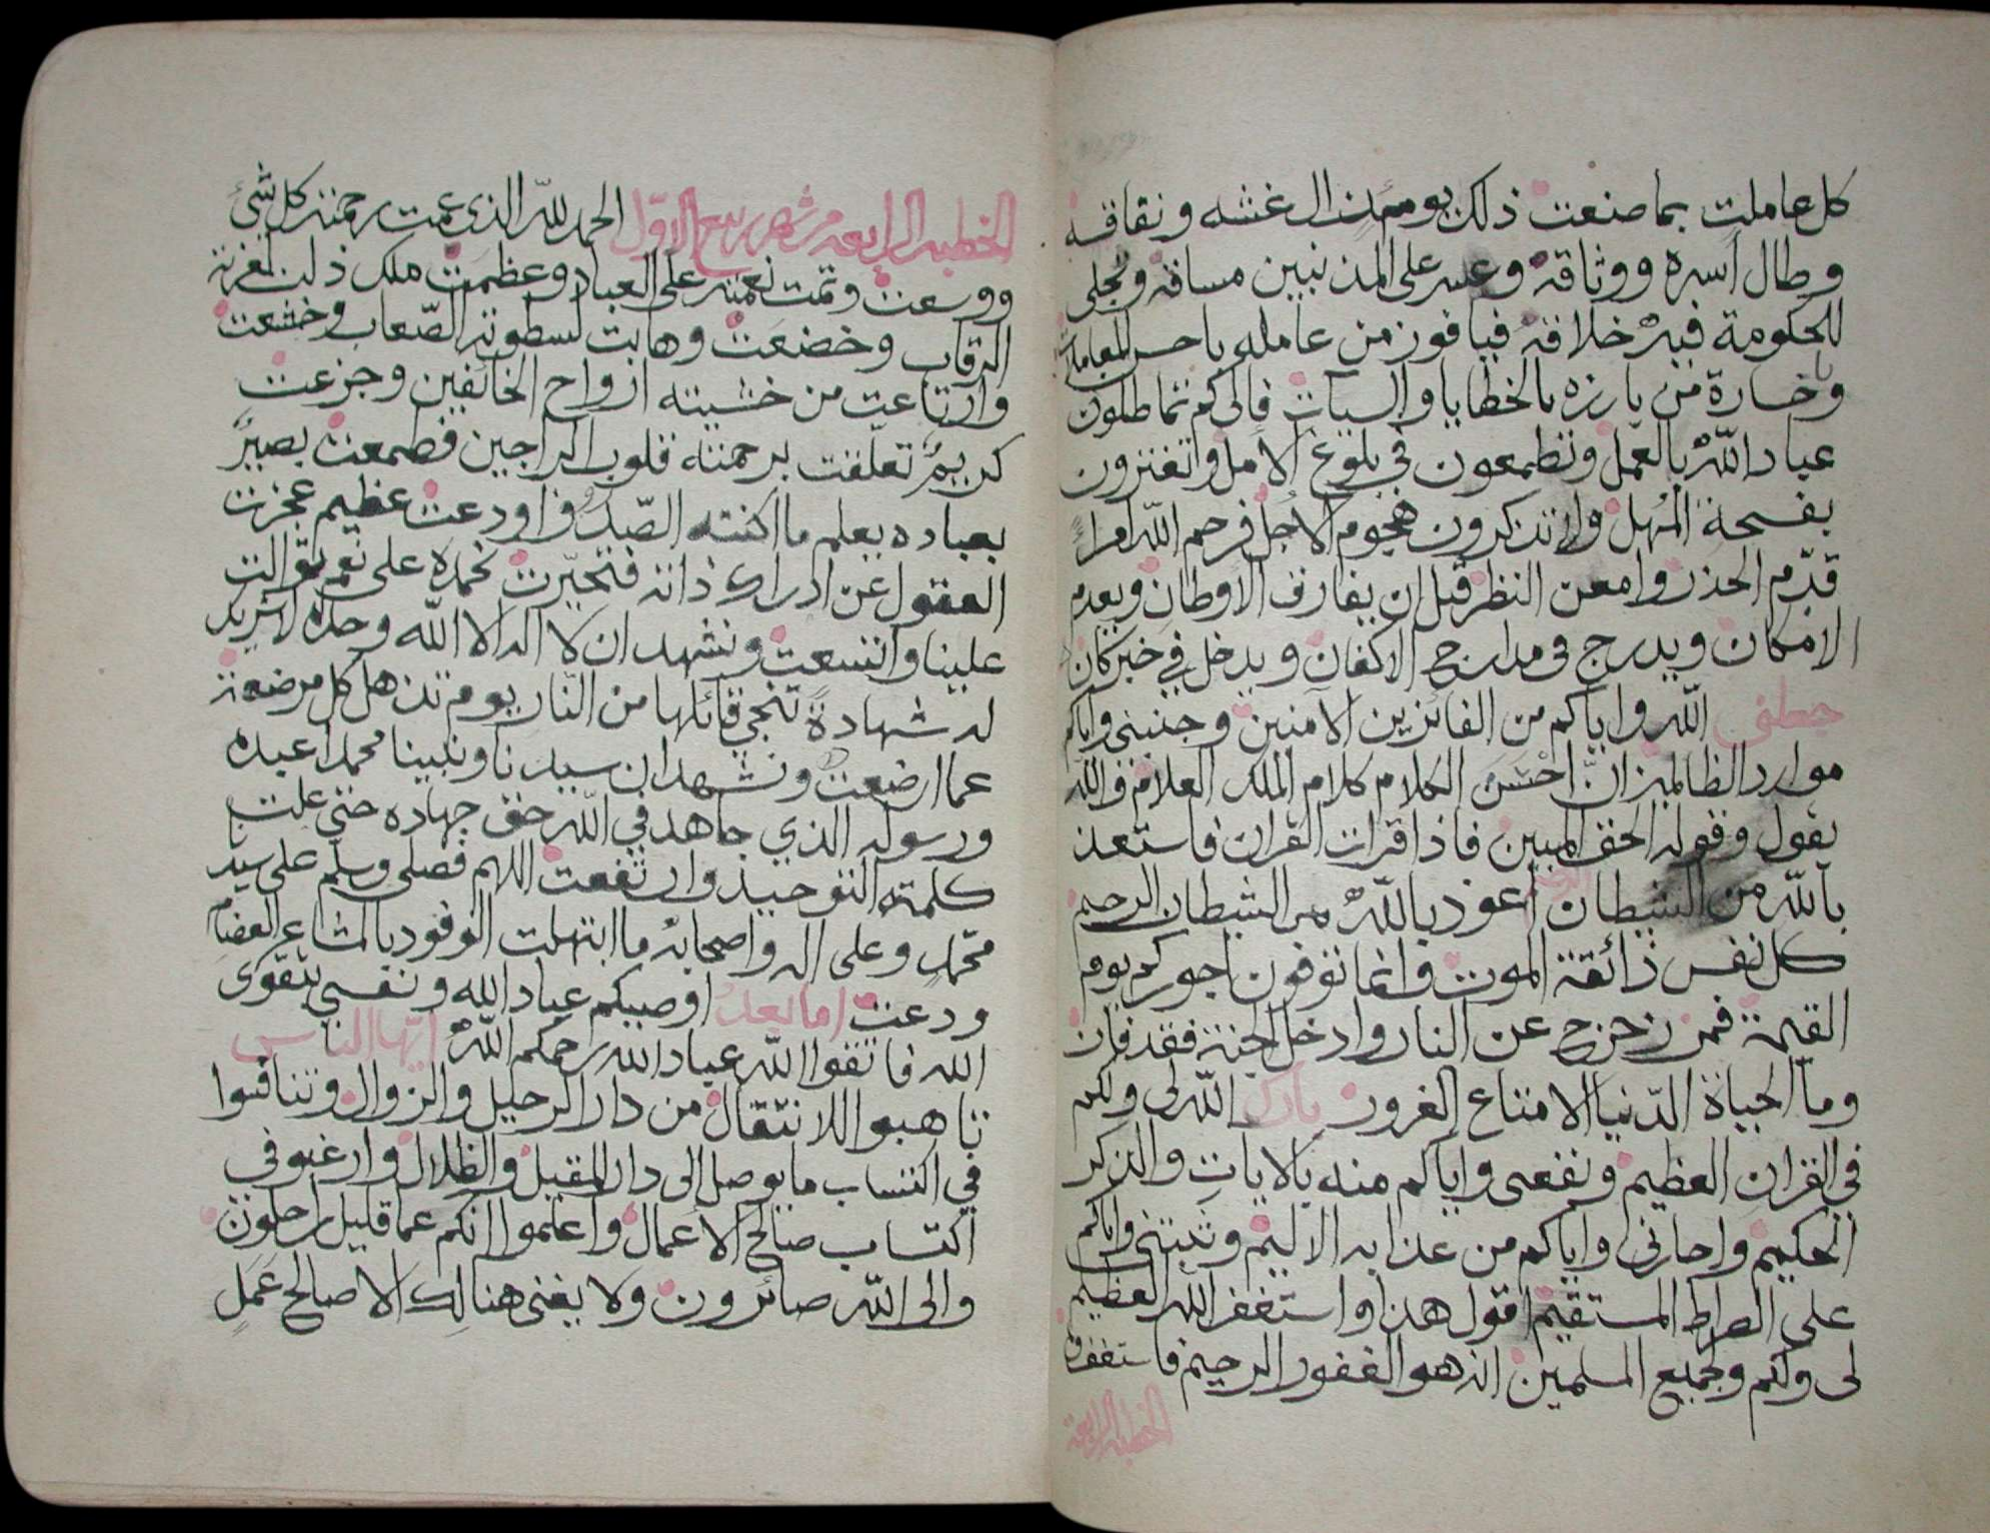 كل عاملت بما صنعت ذلك يوم
وطال اسره ووثاقه وعسر على المذنبين مسافه وتجلى
للحكومة فيه خلافه فيا فوز من عامله باحسن المعاملات
ويا خسارة من بارزه بالخطايا والسيات فالى كم تماطلون
عباد الله بالعمل وتطمعون في بلوغ الامل وتغترون
بفسحة المهل ولا تذكرون هجوم الاجل فرحم الله امرأً
قدّم الحذر وامعن النظر قبل ان يفارق الاوطان ويعدم
الامكان ويدرج في مدارج الاكفان ويدخل في خبر كان
جعلني الله واياكم من الفائزين الآمنين وجنبني واياكم
موارد الظالمين ان احسن الكلام كلام الملك العلام والله
يقول وقوله الحق المبين فاذا قرات القران فاستعذ
بالله من الشيطان الرجيم اعوذ بالله من الشيطان الرجيم
كل نفس ذائقة الموت وانما توفون اجوركم يوم
القيمة فمن زحزح عن النار وادخل الجنة فقد فاز
وما الحياة الدّنيا الا متاع الغرور بارك الله لى ولكم
في القران العظيم ونفعنى واياكم منه بالايات والذكر
الحكيم واجارنى واياكم من عذابه الاليم وثبتنى واياكم
على الصراط المستقيم اقول هذا واستغفر الله العظيم
لى ولكم ولجميع المسلمين انه هو الغفور الرحيم فاستغفروه
الخطبه الرابعة
الخطبه الرابعه من شهر ربيع الاوّل الحمد للّه الذي عمت رحمته كل شئ
ووسعت وتمت نعمته على العباد وعظمت ملك ذلت لعزته
الرقاب وخضعت وهابت لسطوته الصّعاب وخشعت
وارتاعت من خشيته ارواح الخائفين وجزعت
كريمٌ تعلّقت برحمته قلوب الراجين فطمعت بصيرٌ
بعباده يعلم ما اكنته الصّدور واودعت عظيم عجزت
العقول عن ادراك ذاته فتحيّرت نحمده على نعم توالت
علينا واتسعت ونشهد ان لا اله الا الله وحده لا شريك
له شهادةً تنجي قائلها من النّار يوم تذهل كل مرضعة
عما ارضعت ونشهد ان سيدنا ونبينا محمدا عبده
ورسوله الذي جاهد في اللّه حق جهاده حتى علت
كلمته التوحيد وارتفعت اللهم فصلى وسلم على سيدنا
محمّدٍ وعلى اله واصحابه ما ابتهلت الوفود بالمشاعر العضام
ودعت اما بعد اوصيكم عباد الله ونفسي بتقوى
الله فاتقوا اللّه عباد الله رحمكم اللّه ايّها الناس
تاهبوا للانتقال من دار الرحيل والزوال وتنافسوا
في اكتساب ما يوصل الى دار المقيل والظلال وارغبو في
اكتساب صالح الاعمال واعلموا انكم عما قليل راحلون
والى اللّه صائرون ولا يغنى هنالك الا صالح عمل